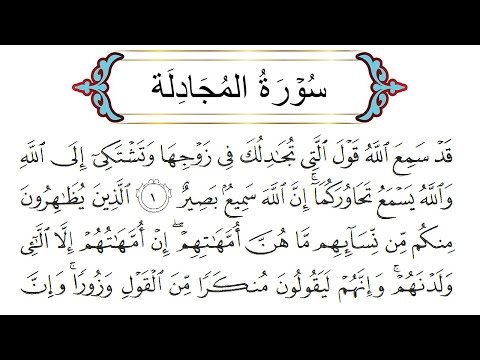 سُورَةُ المُجَادِلَة
قَدْ سَمِعَ ٱللَّهُ قَوْلَ ٱلَّتِي تُجَٰدِلُكَ فِي زَوْجِهَا وَتَشْتَكِيٓ إِلَى ٱللَّهِ
وَٱللَّهُ يَسْمَعُ تَحَاوُرَكُمَآۚ إِنَّ ٱللَّهَ سَمِيعُۢ بَصِيرٌ ١ ٱلَّذِينَ يُظَٰهِرُونَ
مِنكُم مِّن نِّسَآئِهِم مَّا هُنَّ أُمَّهَٰتِهِمْۖ إِنْ أُمَّهَٰتُهُمْ إِلَّا ٱلَّٰٓـِٔي
وَلَدْنَهُمْۚ وَإِنَّهُمْ لَيَقُولُونَ مُنكَرًا مِّنَ ٱلْقَوْلِ وَزُورًاۚ وَإِنَّ